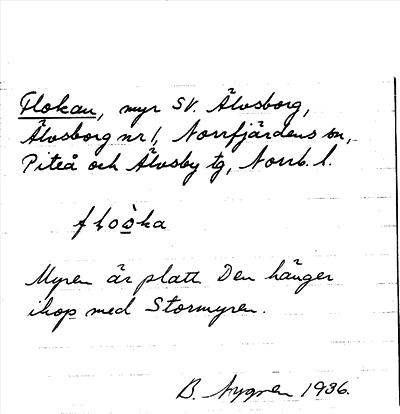 Flokan, myr SV. Älvsborg,
Älvsborg nr 1, Norrfjärdens sn,
Piteå och Älvsby tg, Norrb. l.
flòska
Myren är platt. Den hänger
ihop med Stormyren.
B. Nygren 1936.